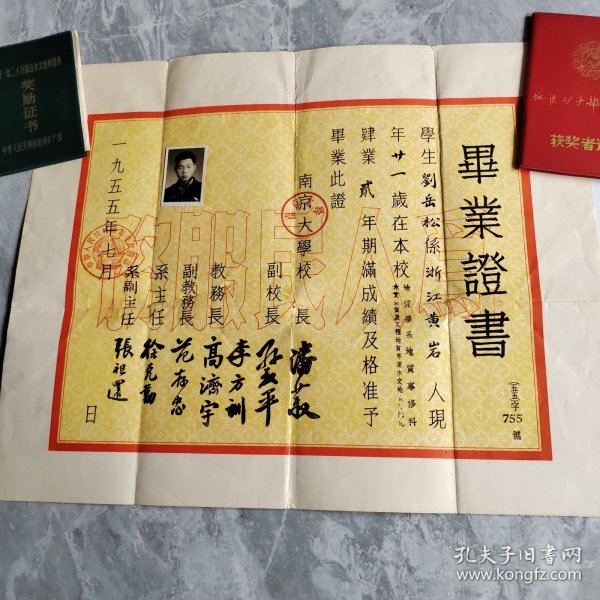 畢業證書
(一五五)字
755
號
學生劉岳松係浙江黃岩人現
年廿一歲在本校
地質學系地質專修科
肄業貳年期滿成績及格准予
畢業此證
南京大學校長
潘菽
副校長
孫叔平
李方訓
教務長
高濟宇
副教務長
范存忠
系主任
徐克勤
系副主任
張祖還
一九五五年七月
日
為人民服務
地质矿产部
获奖者
奖励证书
中华人民共和国地质矿产部
孔夫子旧书网
www.kongfz.com